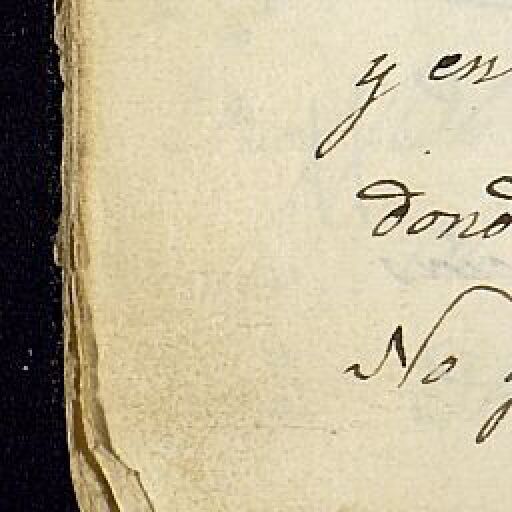 y en
dond
No